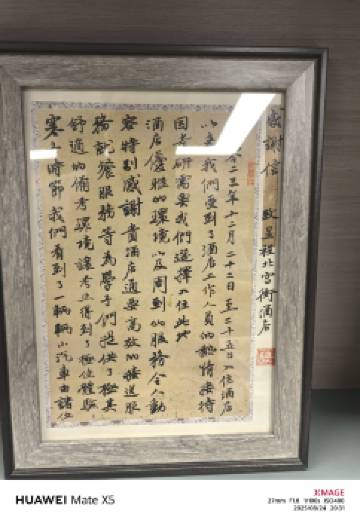 感謝信 致呈程北宫衙酒店
今二三年十二月二十二日至二十五日入住酒店
以来我們受到了酒店工作人員的熱情接待
因考研需要我們選擇入住此地
酒店優雅的環境以及周到的服務令人動
容特别感謝貴酒店通要高效的接送服
務就餐服務等為學子們提供了極其
舒適的備考環境讓考生得到了極佳體驗
寒士時節我們看到了一輛輛小汽車由諸位
HUAWEI Mate X5
XMAGE
27mm F1.8 1/100s ISO400
2025/09/24 20:31